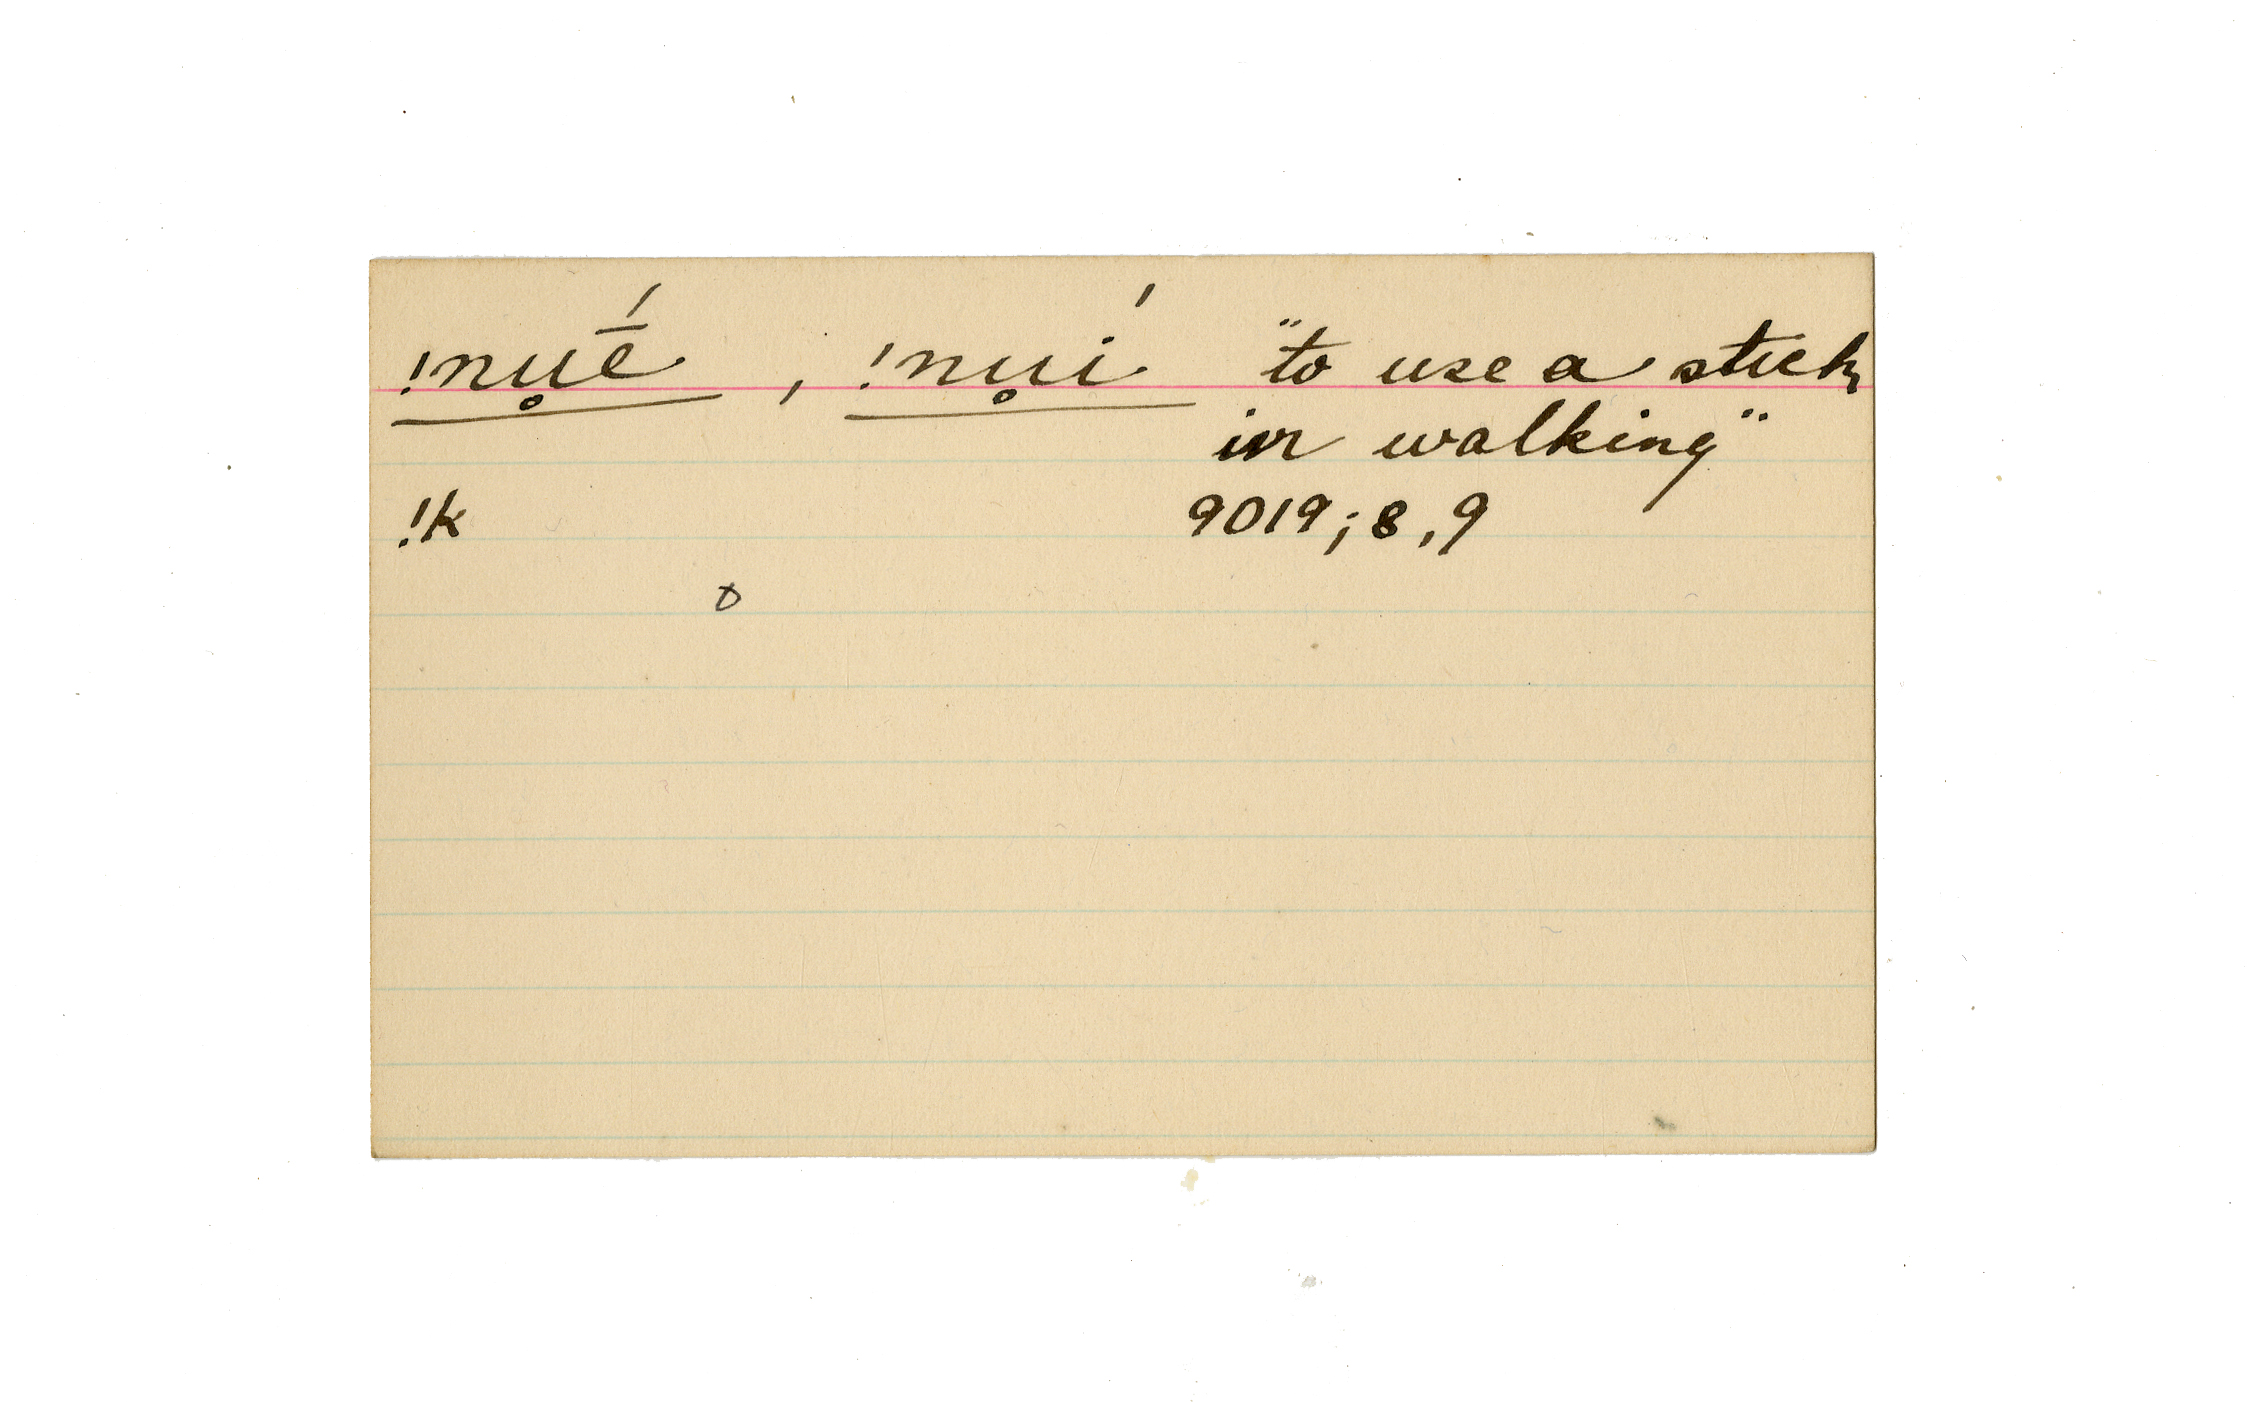 !nu̥ḗ , !nu̥í "to use a stick
in walking"
!k 9019; 8, 9